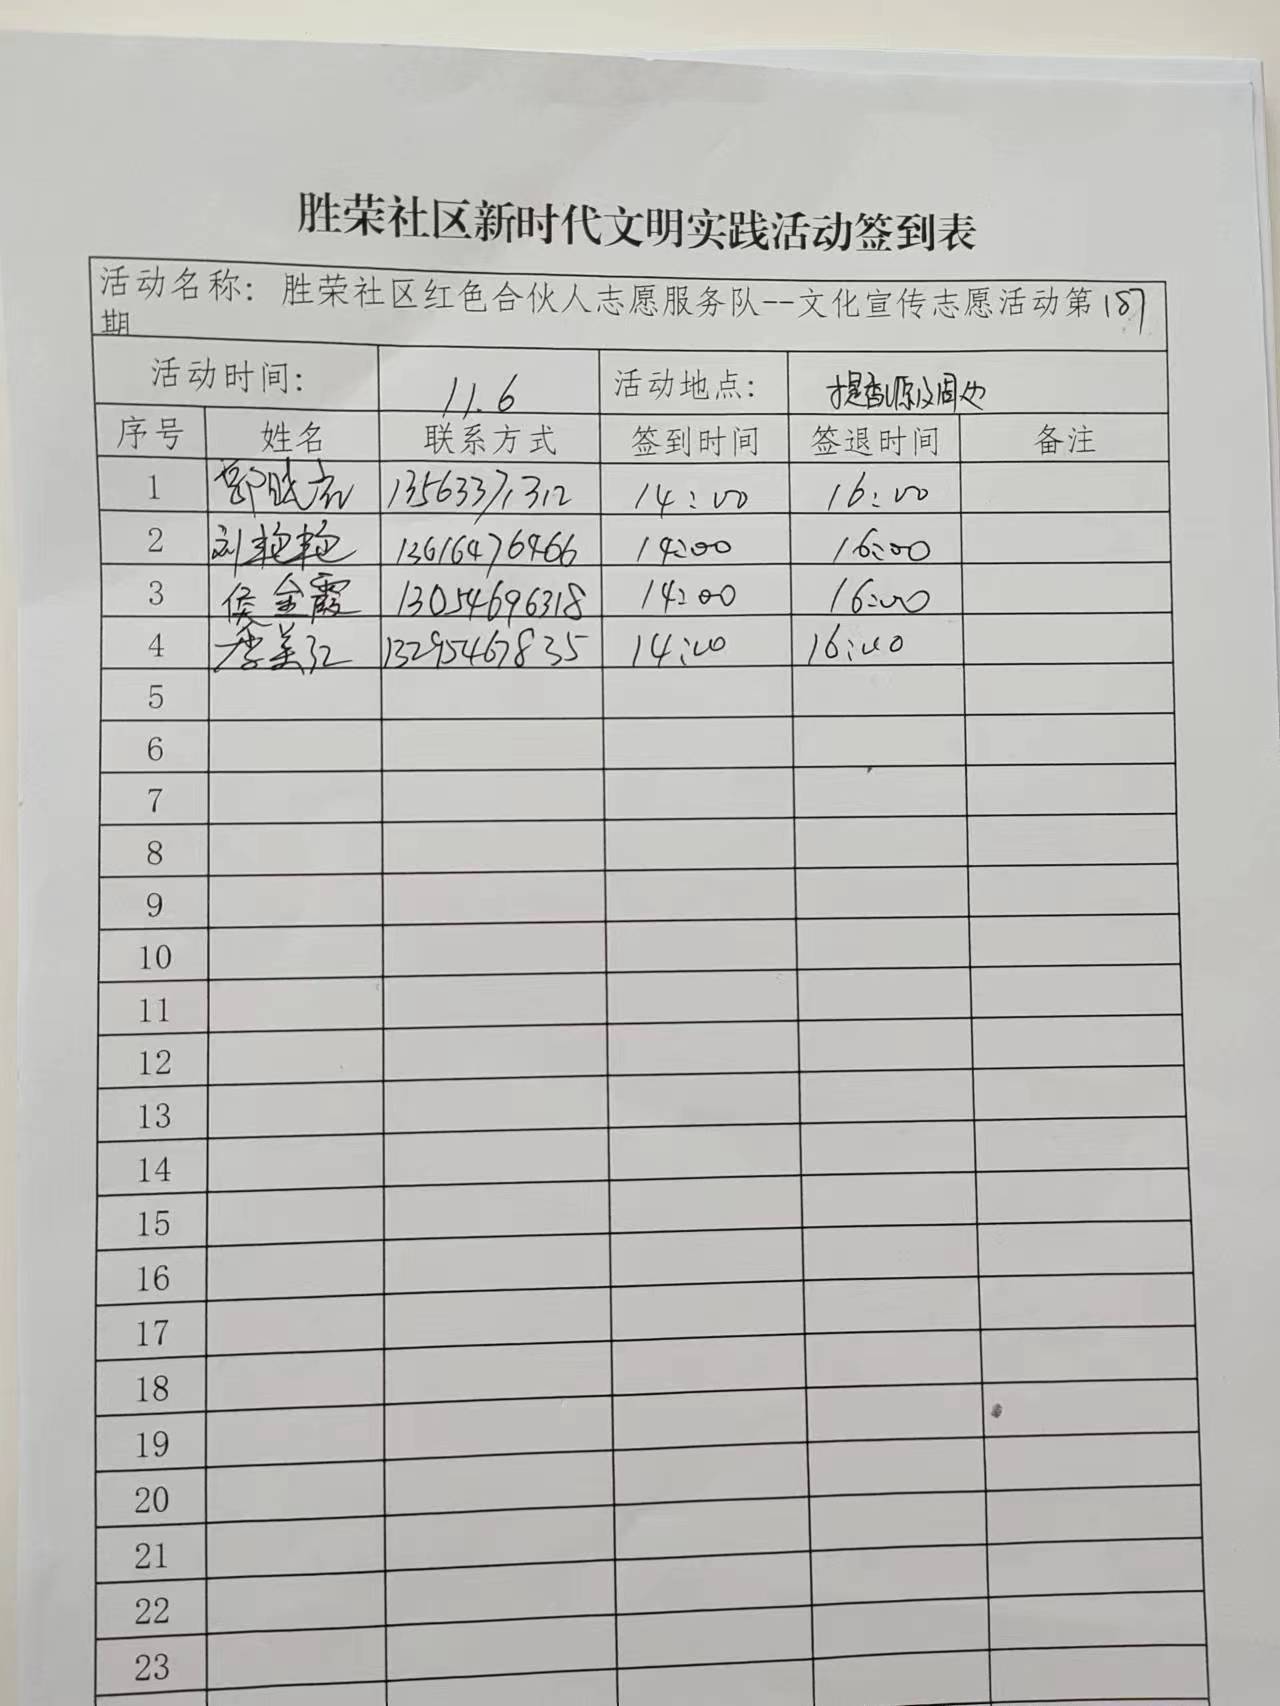 胜荣社区新时代文明实践活动签到表
活动名称：胜荣社区红色合伙人志愿服务队--文化宣传志愿活动第187
期
活动时间： 11.6 活动地点： 提香源及周边
序号 姓名 联系方式 签到时间 签退时间 备注
1 13563371312 14:00 16:00
2 刘艳艳 13616476466 14:00 16:00
3 侯金霞 13054696318 14:00 16:00
4 李美红 13295467835 14:00 16:00
5
6
7
8
9
10
11
12
13
14
15
16
17
18
19
20
21
22
23